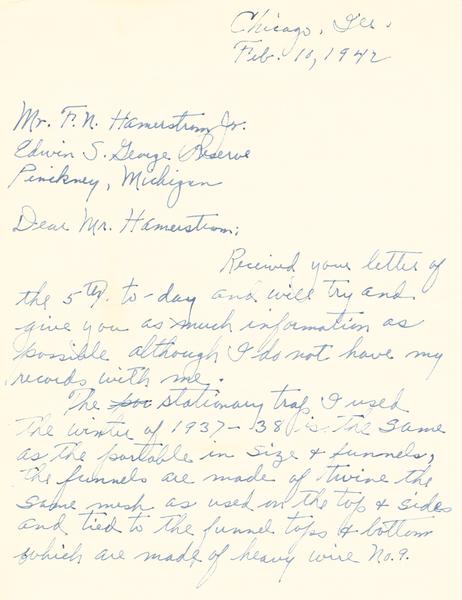 Chicago, Ill.
Feb. 10, 1942
Mr. F. N. Hamerstrom Jr.
Edwin S. George Reserve
Pinckney, Michigan
Dear Mr. Hamerstrom:
Received your letter of
the 5th. to-day and will try and
give you as much information as
possible although I do not have my
records with me.
The stationary trap I used
the winter of 1937-38 is the same
as the portable in size & funnels,
the funnels are made of twine the
same mesh as used on the top & sides
and tied to the funnel tops & bottom
which are made of heavy wire No. 9.